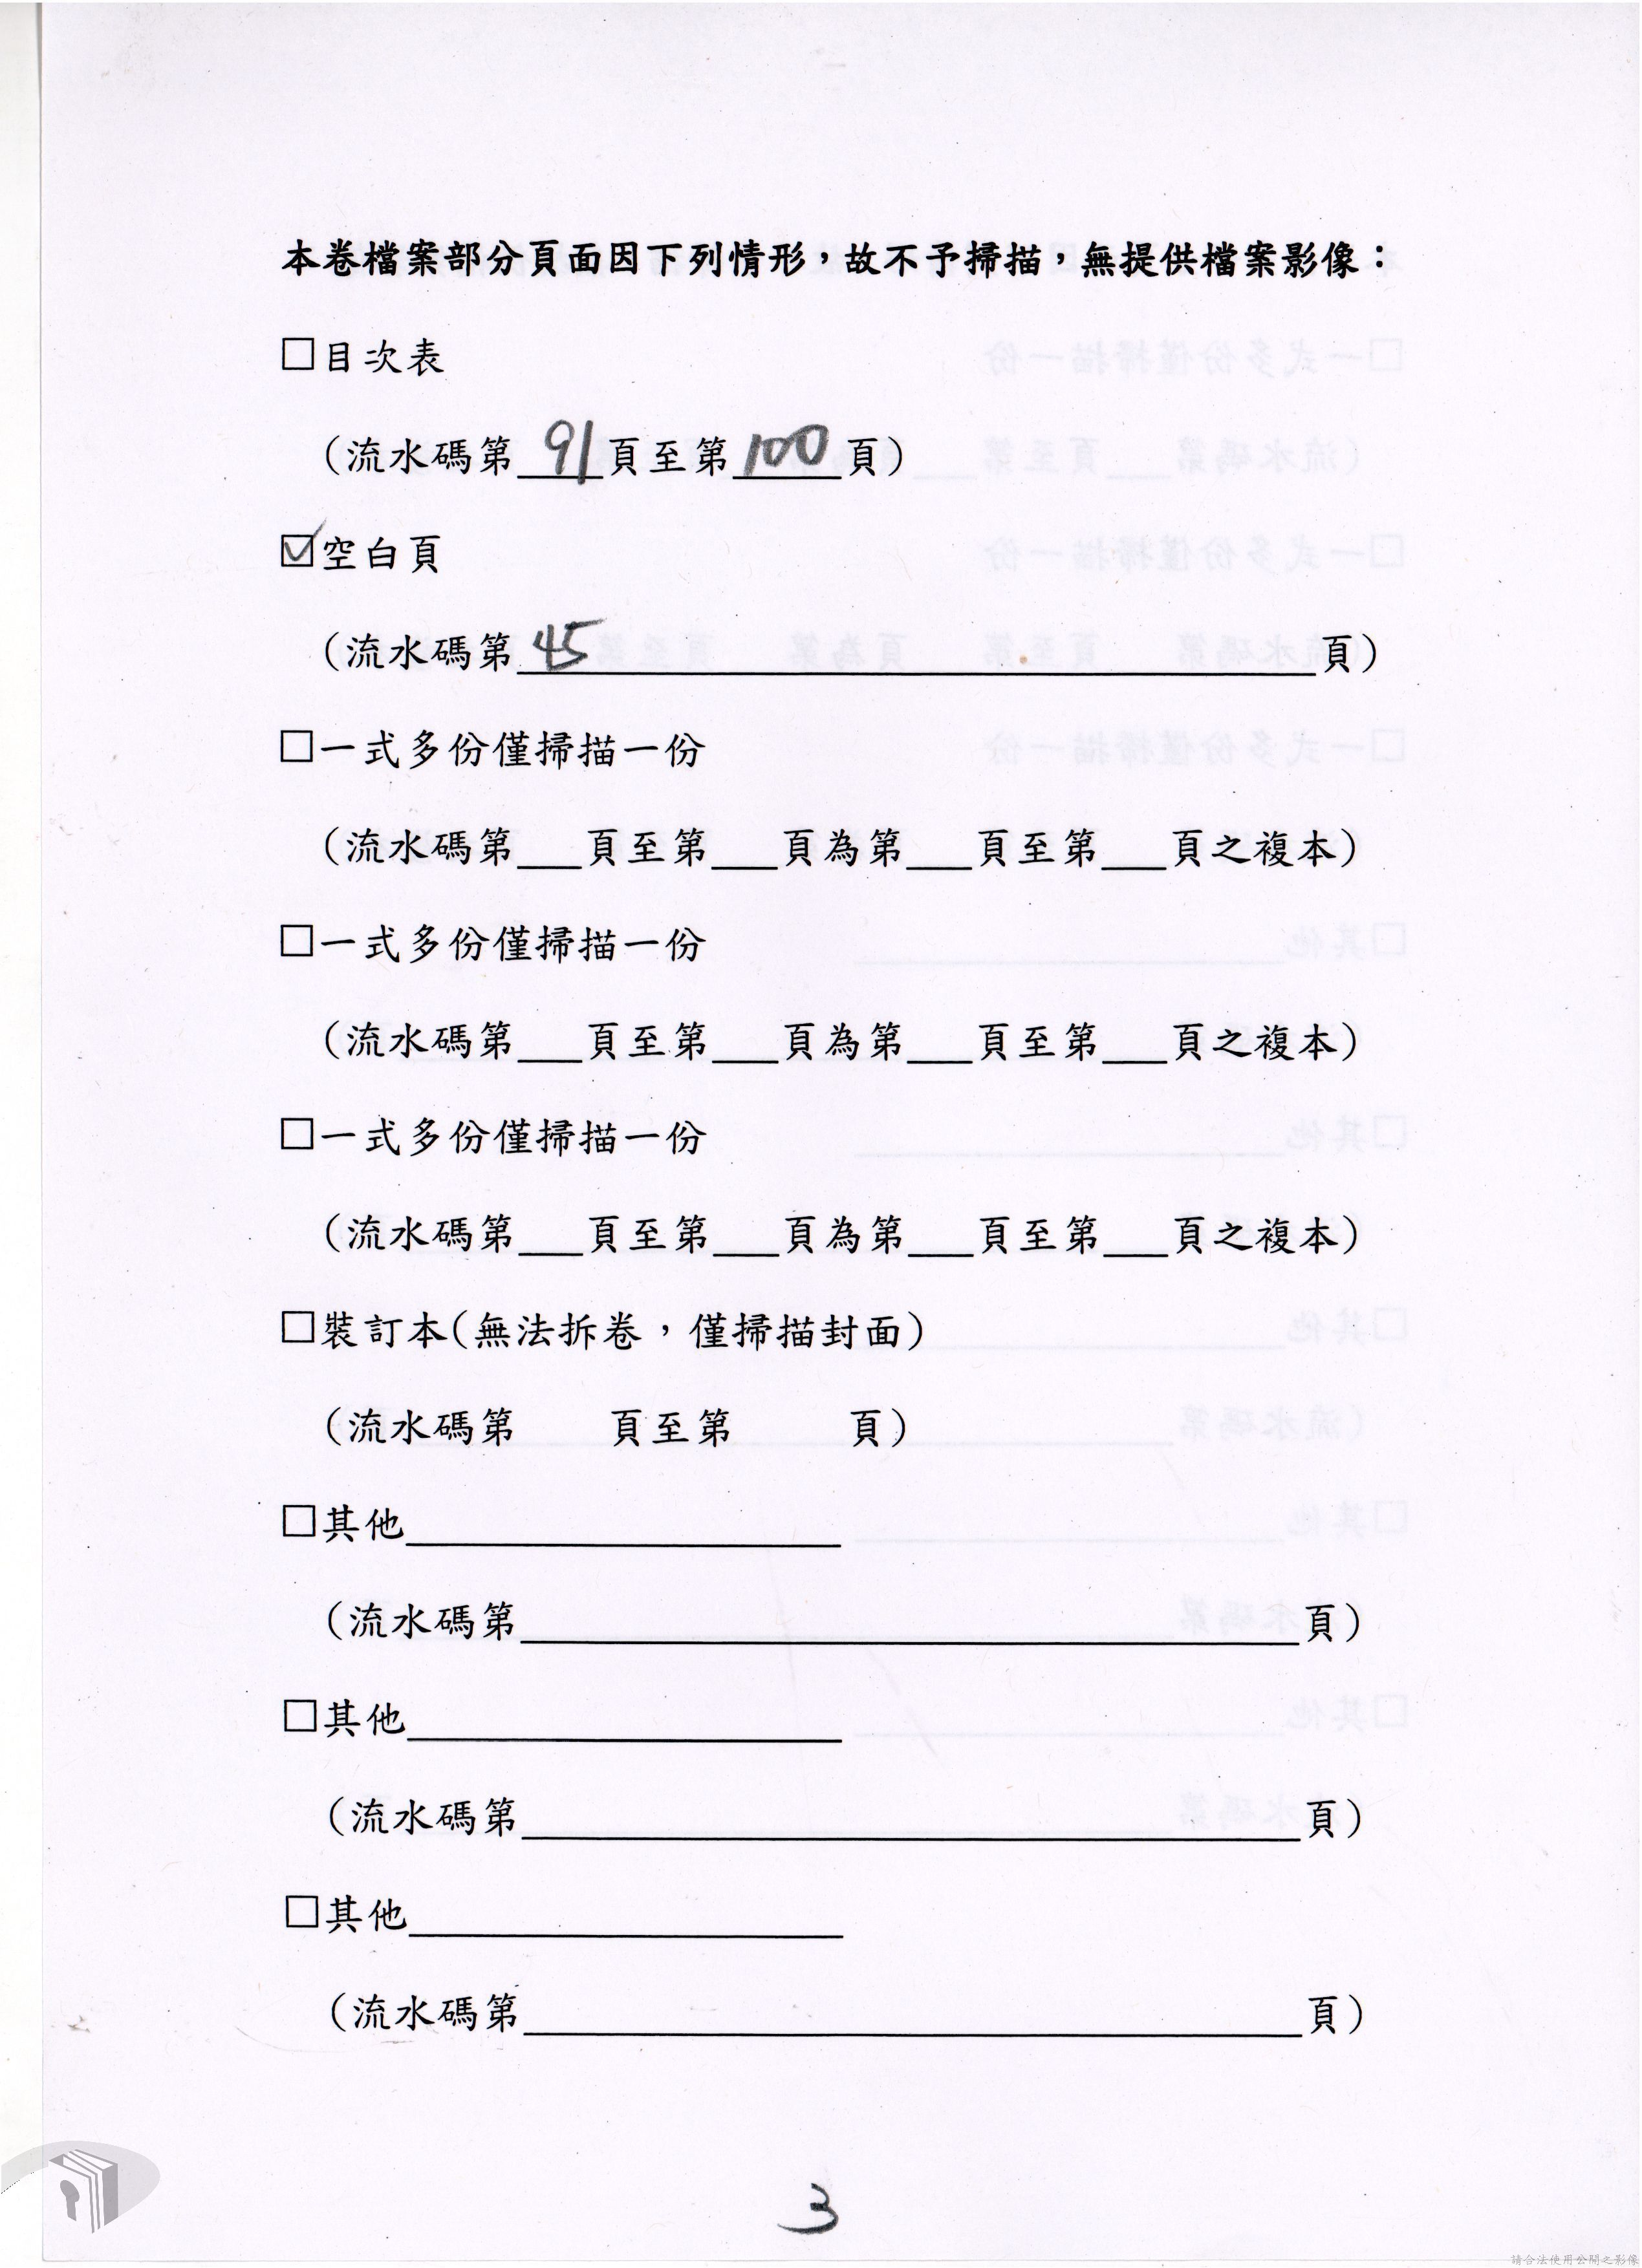 本卷檔案部分頁面因下列情形，故不予掃描，無提供檔案影像：
□目次表
（流水碼第 91 頁至第 100 頁）
☑空白頁
（流水碼第 45 頁）
□一式多份僅掃描一份
（流水碼第___頁至第___頁為第___頁至第___頁之複本）
□一式多份僅掃描一份
（流水碼第___頁至第___頁為第___頁至第___頁之複本）
□一式多份僅掃描一份
（流水碼第___頁至第___頁為第___頁至第___頁之複本）
□裝訂本（無法拆卷，僅掃描封面）
（流水碼第　　頁至第　　頁）
□其他____________
（流水碼第____________頁）
□其他____________
（流水碼第____________頁）
□其他____________
（流水碼第____________頁）
3
請合法使用公開之影像